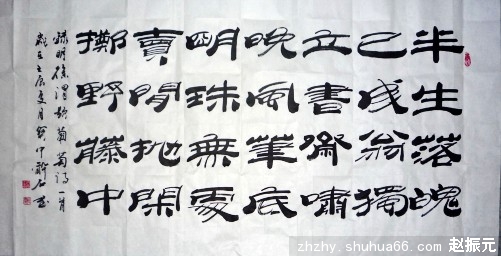 半生落魄
已成翁獨
立書齋嘯
晚風筆底
明珠無處
賣閒抛閑
擲野藤中
錄明徐渭題葡萄詩一首
壬辰夏月
zhzhy.shuhua66.com 赵振元